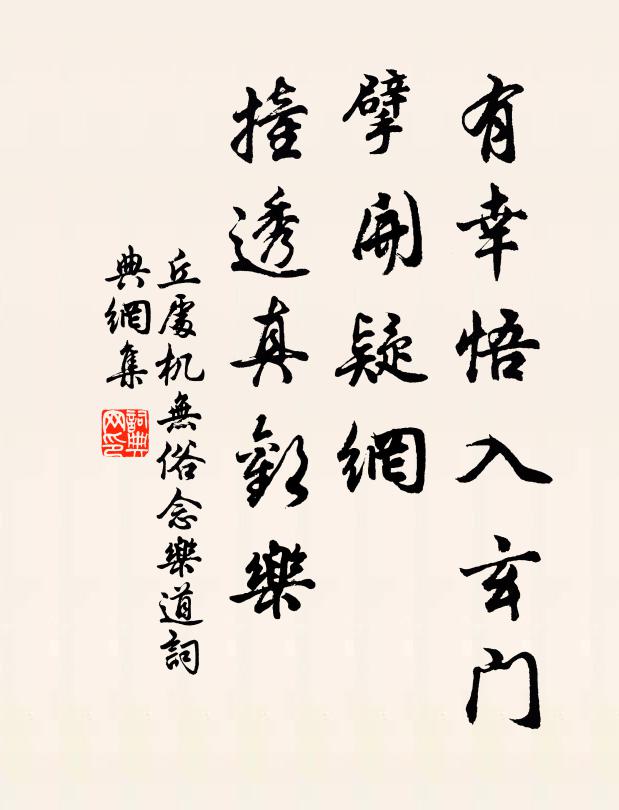 有幸悟入玄門
擘開疑網
撞透真歡樂
丘處机無俗念樂道詞
典網集
詞典
网印